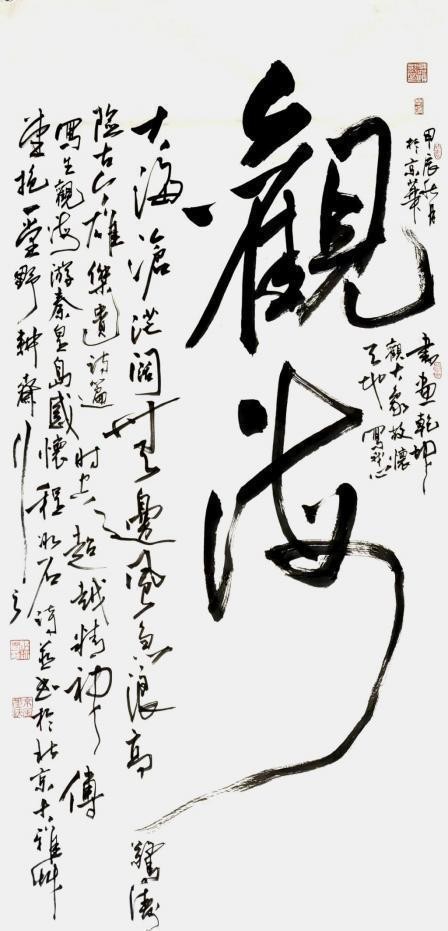 甲辰秋月
於京華
書畫乾坤
觀大象放懷
天地寫我心
觀海
大海滄茫闊無邊風急浪高驚濤
險古今雄傑遺詩篇時空超越精神傳
寫生觀海游秦皇島感懷程冰石詩並書於北京大雅艸
堂抱一堂野耕齋